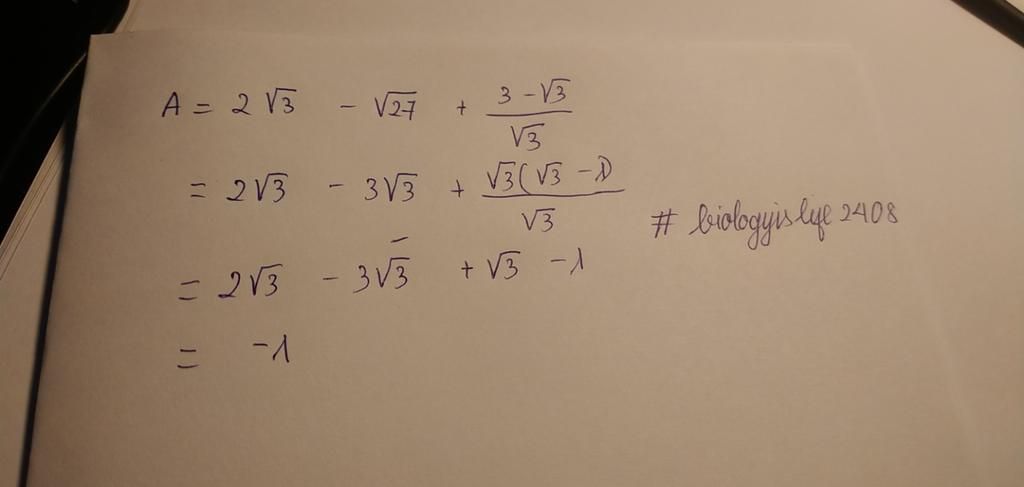 A = 2√3 - √27 + (3 - √3)/√3
= 2√3 - 3√3 + √3(√3 - 1)/√3
# biologyislife2408
= 2√3 - 3√3 + √3 - 1
= -1